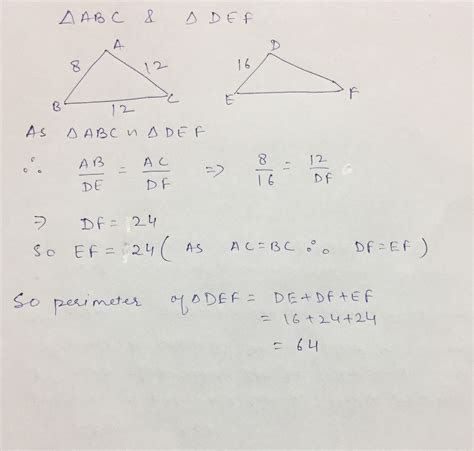 △ABC & △DEF
A
8
12
B
12
C
D
16
E
F
As △ABC ∼ △DEF
∴ AB/DE = AC/DF ⇒ 8/16 = 12/DF
⇒ DF = 24
So EF = 24 ( As AC = BC ∴ DF = EF )
So perimeter of △DEF = DE + DF + EF
= 16 + 24 + 24
= 64